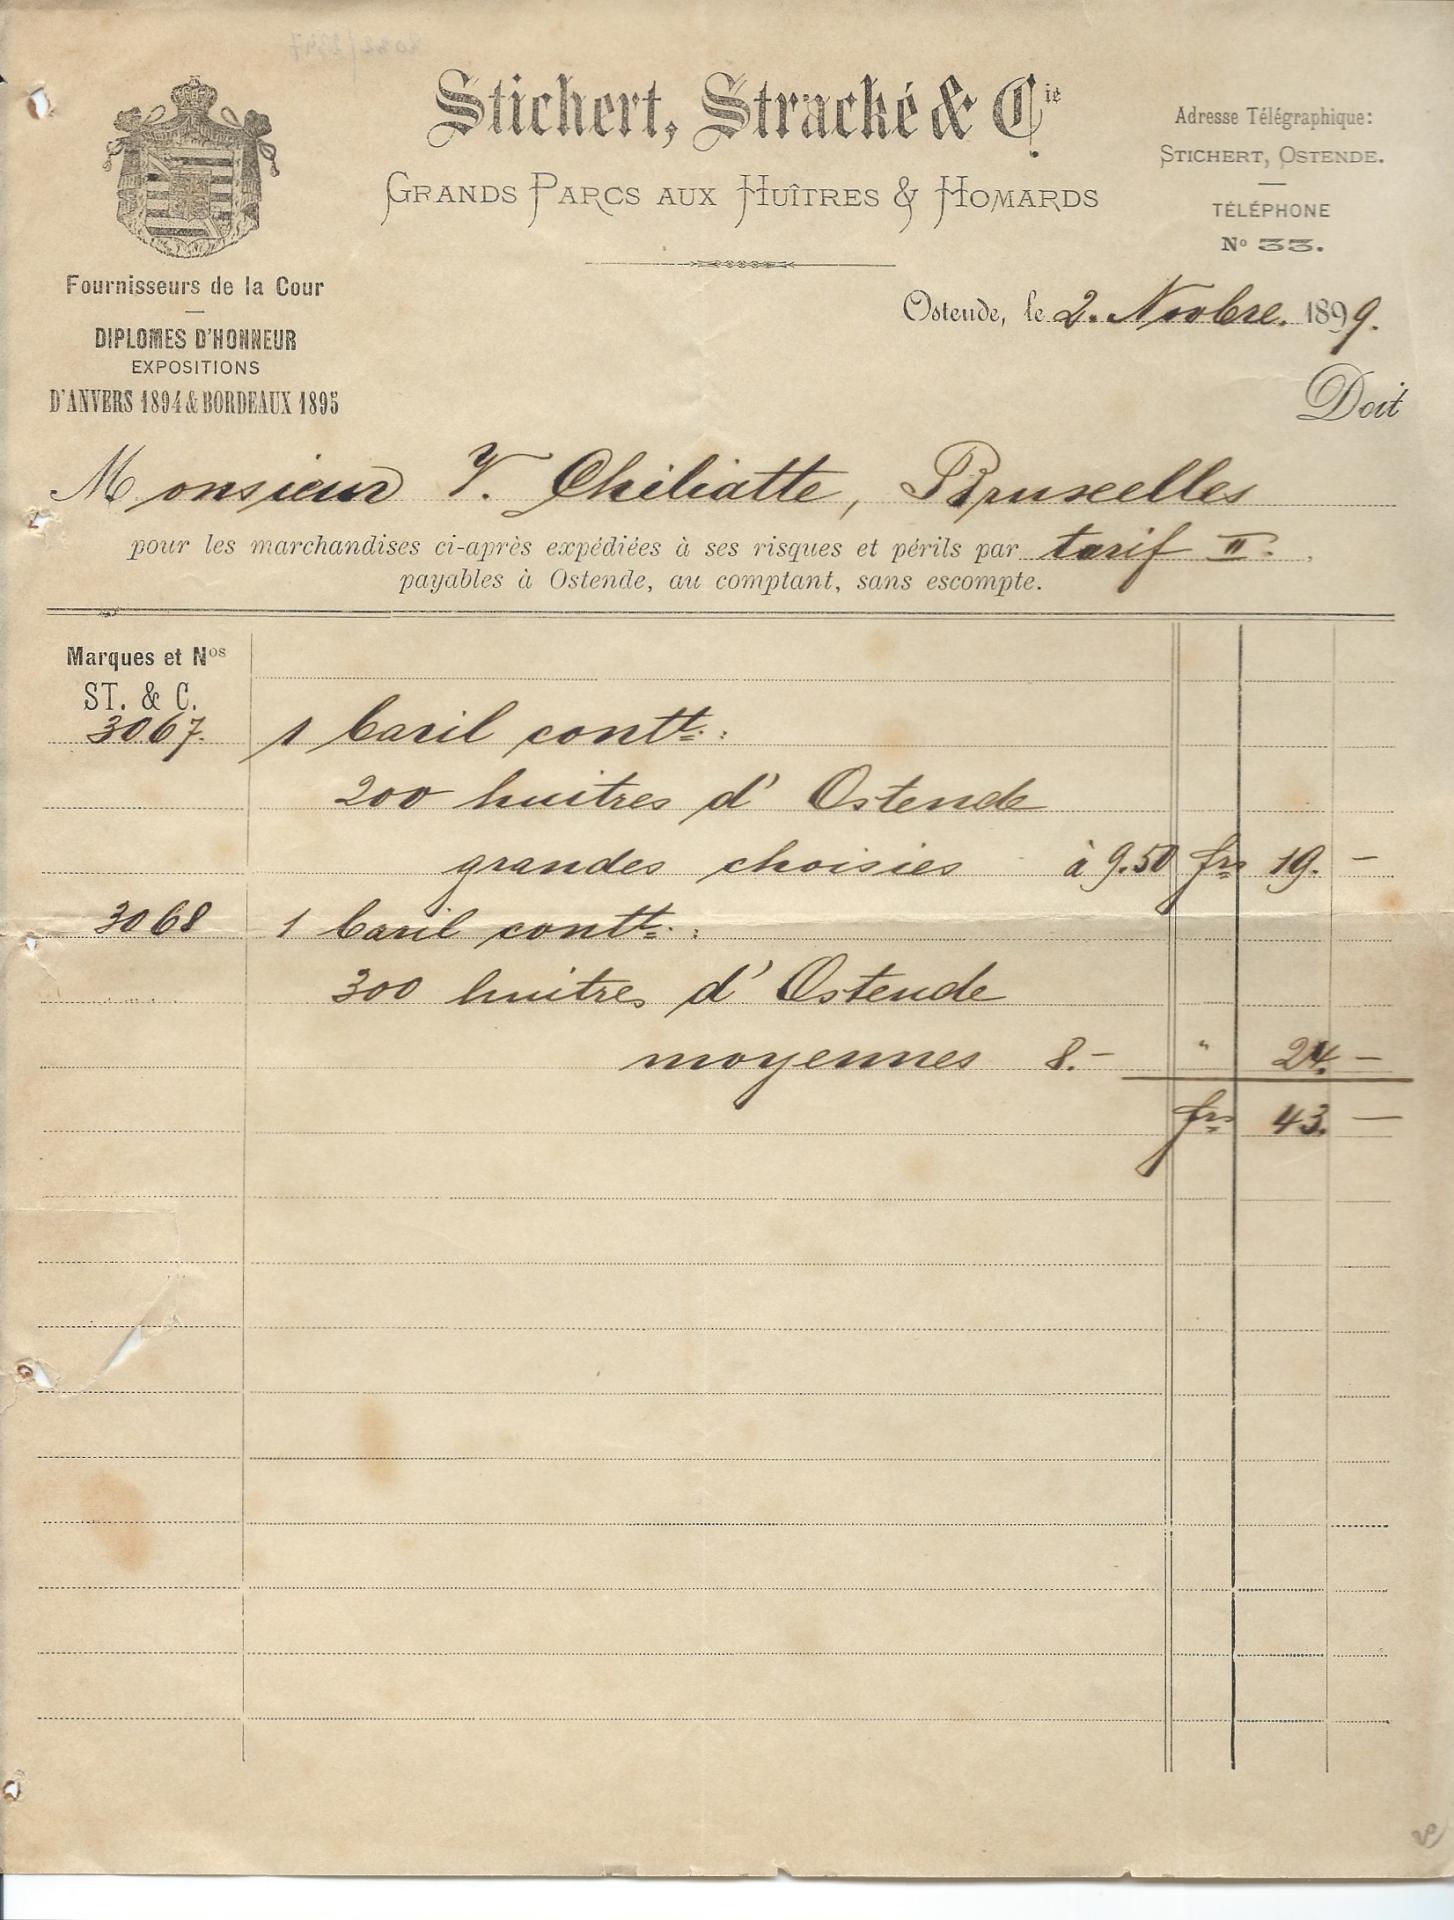 Stichert, Stracké & Cie.
GRANDS PARCS AUX HUÎTRES & HOMARDS
Adresse Télégraphique:
STICHERT, OSTENDE.
TÉLÉPHONE
No 33.
Fournisseurs de la Cour
DIPLOMES D'HONNEUR
EXPOSITIONS
D'ANVERS 1894 & BORDEAUX 1895
Ostende, le 2. Novbre. 1899.
Doit
Monsieur V. Chiliatte, Bruxelles
pour les marchandises ci-après expédiées à ses risques et périls par tarif II.
payables à Ostende, au comptant, sans escompte.
Marques et Nos
ST. & C.
3067. 1 baril contt. :
200 huitres d'Ostende
grandes choisies à 9.50 frs 19. —
3068 1 baril contt. :
300 huitres d'Ostende
moyennes 8.— " 24. —
frs 43. —